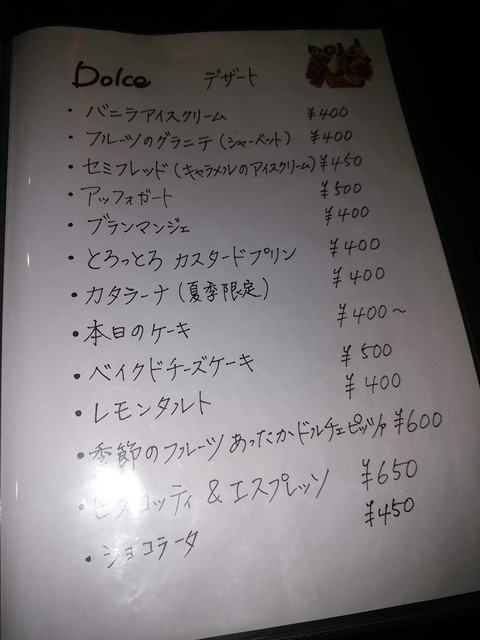 Dolce デザート
・バニラアイスクリーム ¥400
・フルーツのグラニテ(シャーベット) ¥400
・セミフレッド(キャラメルのアイスクリーム) ¥450
・アッフォガート ¥500
・ブランマンジェ ¥400
・とろっとろ カスタードプリン ¥400
・カタラーナ(夏季限定) ¥400
・本日のケーキ ¥400〜
・ベイクドチーズケーキ ¥500
・レモンタルト ¥400
・季節のフルーツ あったかドルチェピッツァ ¥600
・ビスコッティ & エスプレッソ ¥650
・ショコラータ ¥450